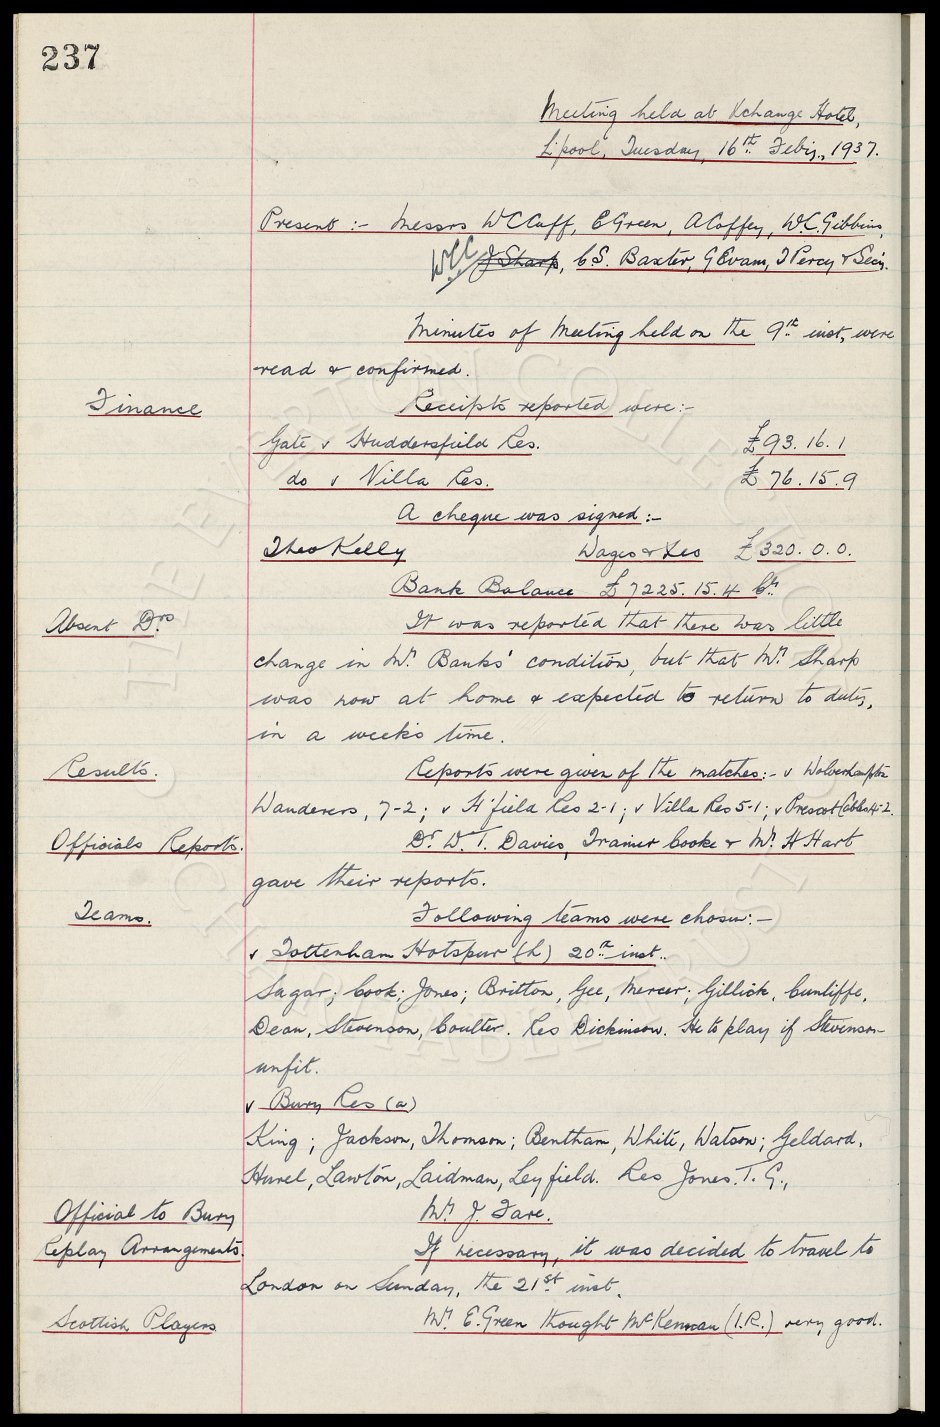 237
Meeting held at Xchange Hotel,
L'pool, Tuesday, 16th Feby., 1937.
Present :- Messrs W C Cuff, E Green, A Coffey, W.C. Gibbins,
WCC J Sharp, C.S. Baxter, G Evans, T Percy & Secy.
Minutes of Meeting held on the 9th inst, were
read & confirmed.
Finance Receipts reported were:-
Gate v Huddersfield Res. £93. 16. 1
do v Villa Res. £ 76. 15. 9
A cheque was signed :-
Theo Kelly Wages & £320. 0. 0.
Bank Balance £7225. 15. 4 Cr
Absent Drs It was reported that there was little
change in Mr. Banks' condition, but that Mr Sharp
was now at home & expected to return to duty,
in a week's time.
Results. Reports were given of the matches:- v Wolverhampton
Wanderers, 7-2; v H'field Res 2-1; v Villa Res 5-1; v Prescot Cables 4-2.
Officials Reports. Dr. W. T. Davies, Trainer Cooke & Mr. H Hart
gave their reports.
Teams. Following teams were chosen:-
v Tottenham Hotspur (h) 20th inst..
Sagar; Cook; Jones; Britton, Gee, Mercer; Gillick, Cunliffe,
Dean, Stevenson, Coulter. Res Dickinson. He to play if Stevenson
unfit.
v Bury Res (a)
King; Jackson, Thomson; Bentham, White, Watson; Geldard,
Hurel, Lawton, Laidman, Leyfield. Res Jones. T. G.,
Official to Bury Mr J. Fare.
Replay Arrangements. If necessary, it was decided to travel to
London on Sunday, the 21st inst.
Scottish Players Mr E. Green thought McKennan (I.R.) very good.
THE EVERTON COLLECTION
CHARITABLE TRUST